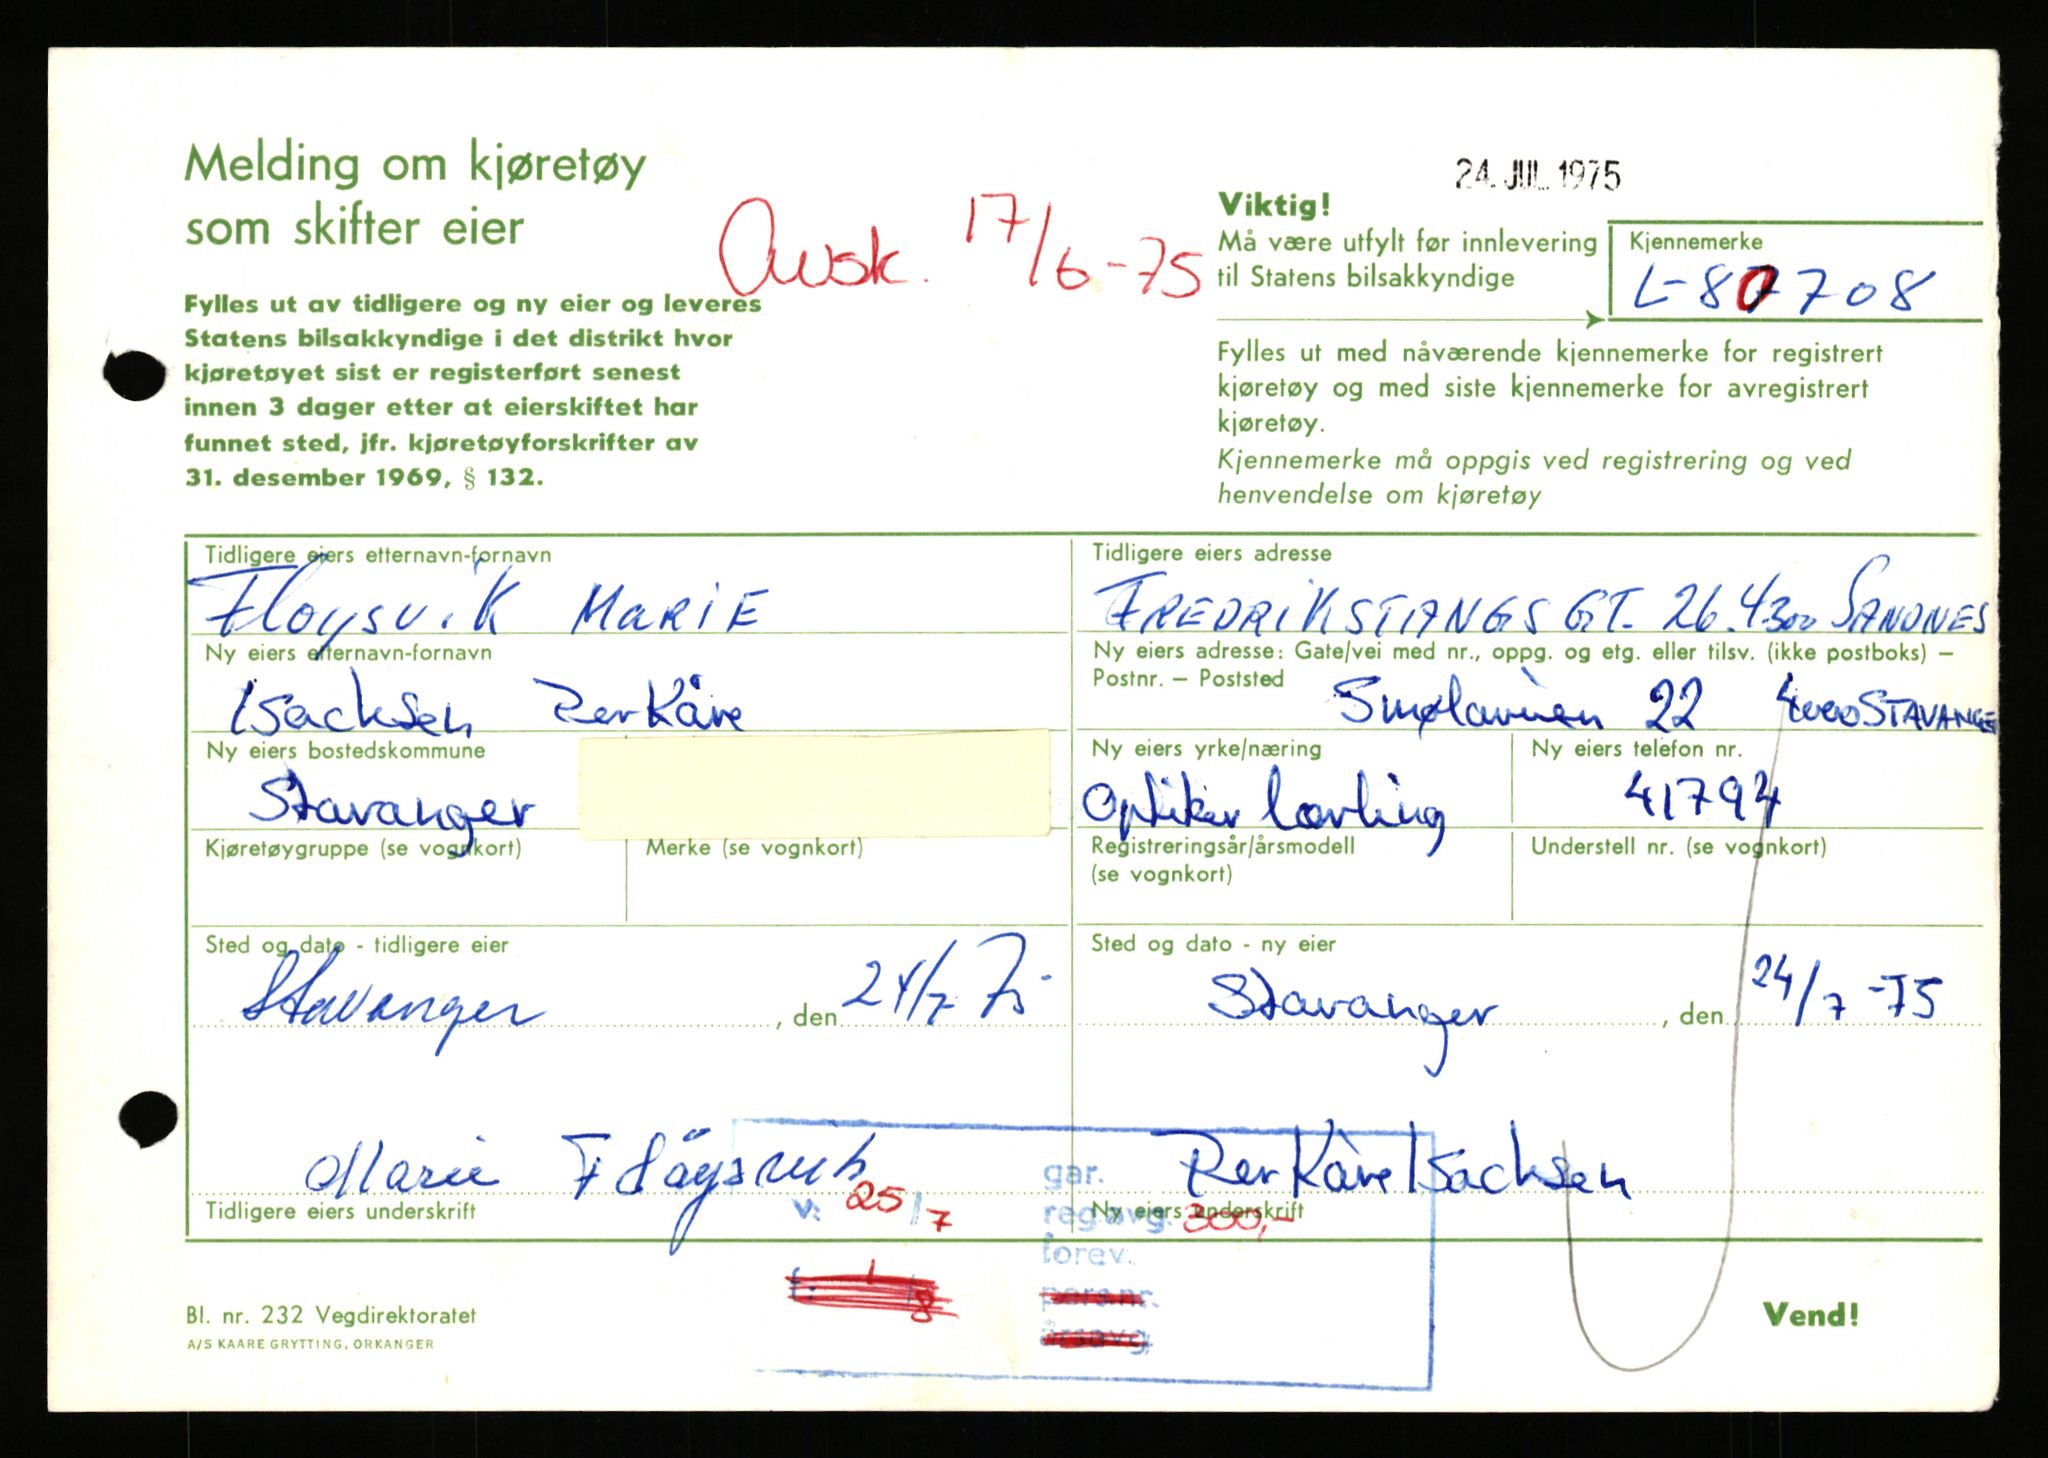 Melding om kjøretøy
som skifter eier
Avsk. 17/6-75
24. JUL 1975
Fylles ut av tidligere og ny eier og leveres
Statens bilsakkyndige i det distrikt hvor
kjøretøyet sist er registerført senest
innen 3 dager etter at eierskiftet har
funnet sted, jfr. kjøretøyforskrifter av
31. desember 1969, § 132.
Viktig!
Må være utfylt før innlevering
til Statens bilsakkyndige
Kjennemerke
L-80708
Fylles ut med nåværende kjennemerke for registrert
kjøretøy og med siste kjennemerke for avregistrert
kjøretøy.
Kjennemerke må oppgis ved registrering og ved
henvendelse om kjøretøy
Tidligere eiers etternavn-fornavn
Fløysvik MARIE
Tidligere eiers adresse
FREDRIKSTANGSGT. 26. 4300 SANDNES
Ny eiers etternavn-fornavn
Isachsen Per Kåre
Ny eiers adresse: Gate/vei med nr., oppg. og etg. eller tilsv. (ikke postboks) –
Postnr. – Poststed
Smølaveien 22 4000 STAVANGER
Ny eiers bostedskommune
Stavanger
Ny eiers yrke/næring
Optiker lærling
Ny eiers telefon nr.
41794
Kjøretøygruppe (se vognkort)
Merke (se vognkort)
Registreringsår/årsmodell
(se vognkort)
Understell nr. (se vognkort)
Sted og dato - tidligere eier
Stavanger, den 24/7 75
Sted og dato - ny eier
Stavanger, den 24/7-75
Marie Fløysvik
Tidligere eiers underskrift
Per Kåre Isachsen
Ny eiers underskrift
v: 25/7
gar.
reg.avg. 300,-
forev.
pers.nr.
årsavg.
Bl. nr. 232 Vegdirektoratet
A/S KAARE GRYTTING, ORKANGER
Vend!